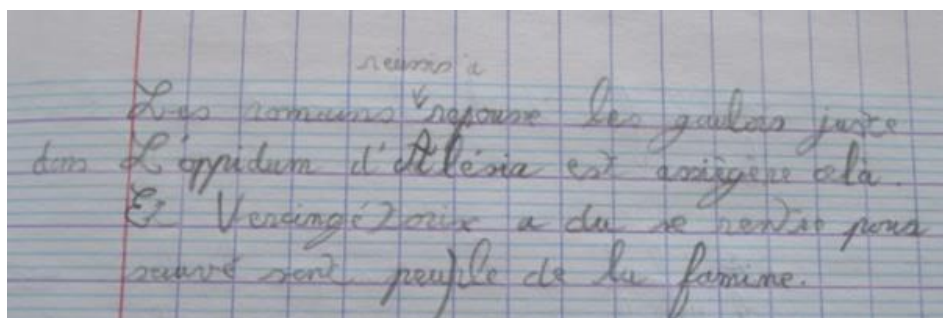 réunis a
Les romains repouse les gaulois juste
dans L'oppidum d'Alésia est assiégère cela.
Et Vercingétorix a du se rendre pour
sauvé sont peuple de la famine.